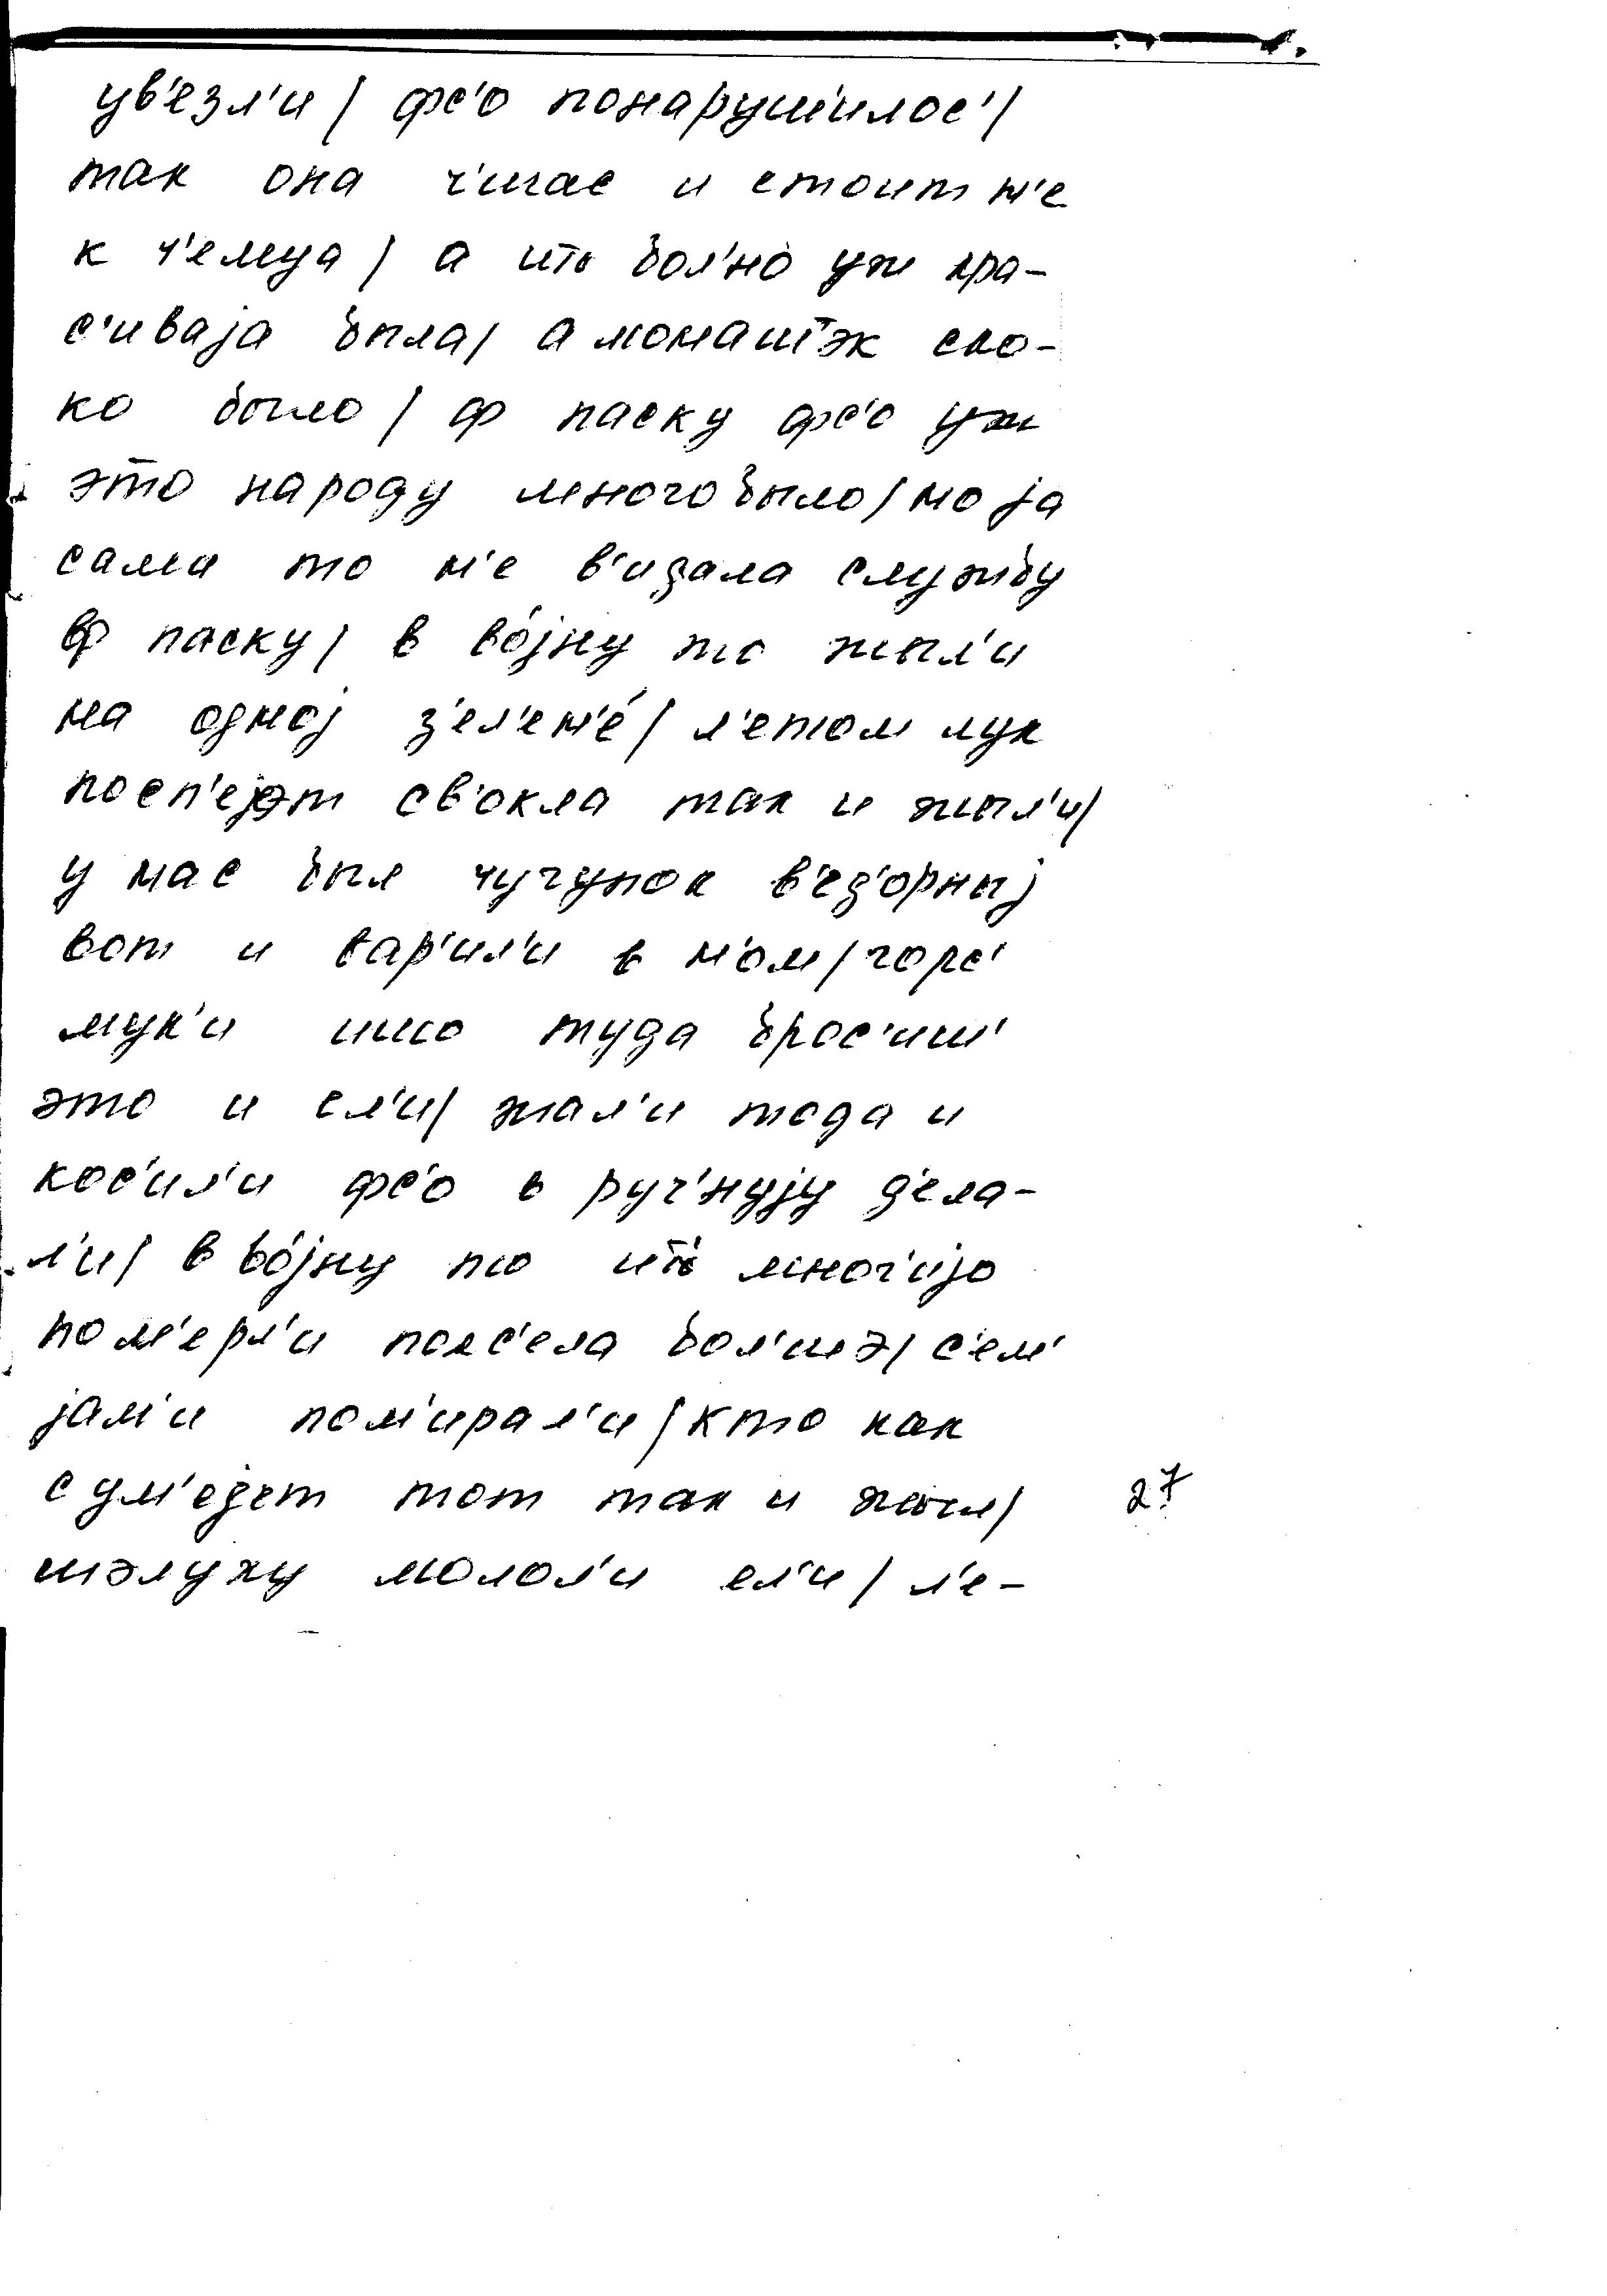 ув'езл'и / фс'о понаруш'илос' /
так она ч'ишас и стоит н'е
к ч'ему а / а ить бол'но уж кра-
с'иваjа была / а монашэк ско-
ко было / ф паску фс'о уж
это народу много было / но jа
сама то н'е в'идала службу
ф паску / в во́jну то жыл'и
на одноj з'ел'ен'е́ / л'етом лук
посп'еjэт св'окла так и жыл'и /
у нас был чугунок в'ед'орныj
вот и вар'ил'и в н'ом / горс'
мук'и ишо туда брос'иш'
это и ел'и / жал'и тода и
кос'ил'и фс'о в руч'нуjу д'ела-
л'и / в во́jну то ить мног'иjо
пом'ерл'и полс'ела бол'шэ / с'ем'
jам'и пом'ирал'и / кто как
сум'еjет тот так и жыл /
27
шэлуху молол'и ел'и / л'е-